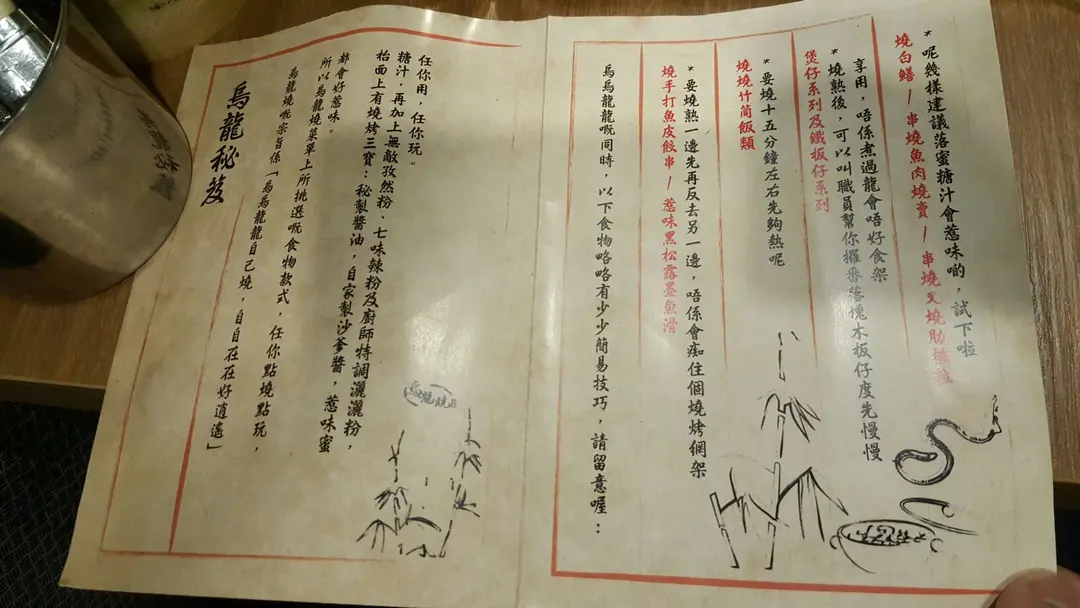 烏龍秘笈
烏龍燒嘅宗旨係「烏烏龍龍自己燒，自自在在好逍遙」
所以烏龍燒菜單上所挑選嘅食物款式，任你點燒點玩，
都會好惹味。
枱面上有燒烤三寶：秘製醬油，自家製沙爹醬，惹味蜜
糖汁，再加上無敵孜然粉、七味辣粉及廚師特調灑灑粉，
任你用，任你玩。
烏龍燒
烏烏龍龍嘅同時，以下食物咯咯有少少簡易技巧，請留意喔：
燒手打魚皮餃串/惹味黑松露墨魚滑
*要燒熟一邊先再反去另一邊，唔係會痴住個燒烤網架
燒燒竹筒飯類
*要燒十五分鐘左右先夠熱呢
煲仔系列及鐵板仔系列
*燒熱後，可以叫職員幫你攞番落塊木板仔度先慢慢
享用，唔係煮過龍會唔好食架
燒白鱔/串燒魚肉燒賣/串燒叉燒肋
*呢幾樣建議落蜜糖汁會惹味啲，試下啦